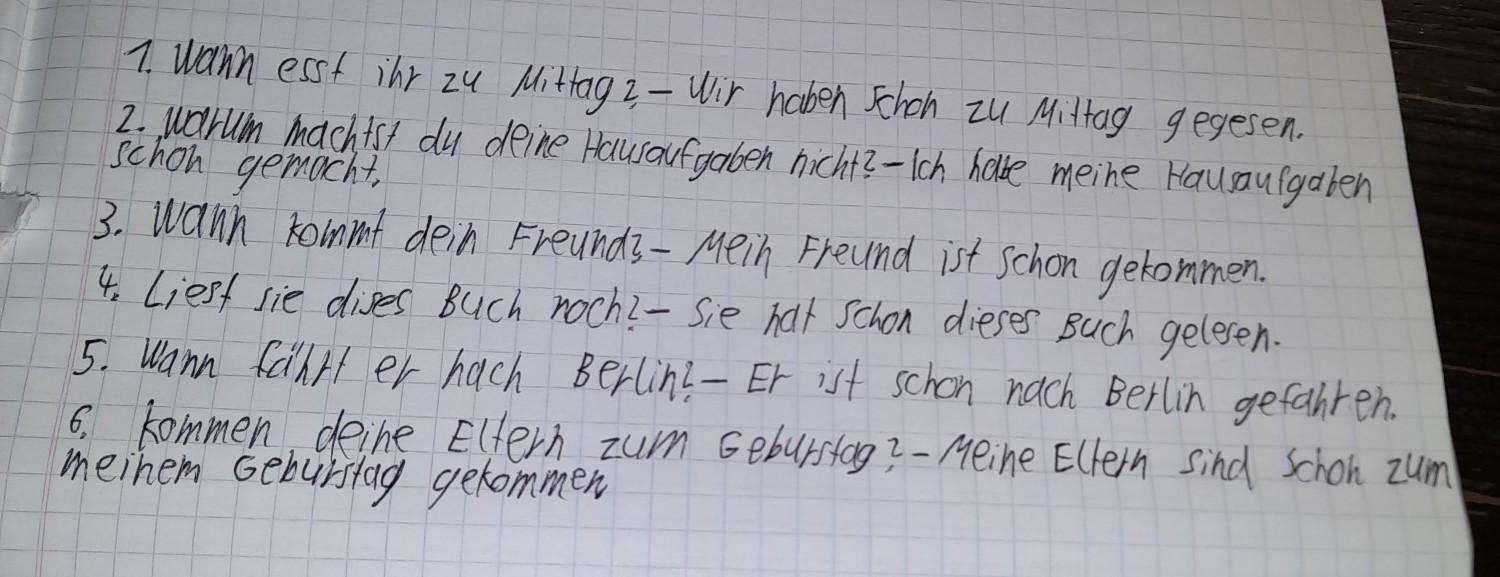 1. Wann esst ihr zu Mittag? – Wir haben schon zu Mittag gegesen.
2. Warum machtst du deine Hausaufgaben nicht? – Ich habe meine Hausaufgaben
schon gemacht.
3. Wann kommt dein Freund? – Mein Freund ist schon gekommen.
4. Liest sie dises Buch noch? – Sie hat schon dieses Buch gelesen.
5. Wann fährt er nach Berlin? – Er ist schon nach Berlin gefahren.
6. Kommen deine Eltern zum Geburstag? – Meine Eltern sind schon zum
meinem Geburstag gekommen